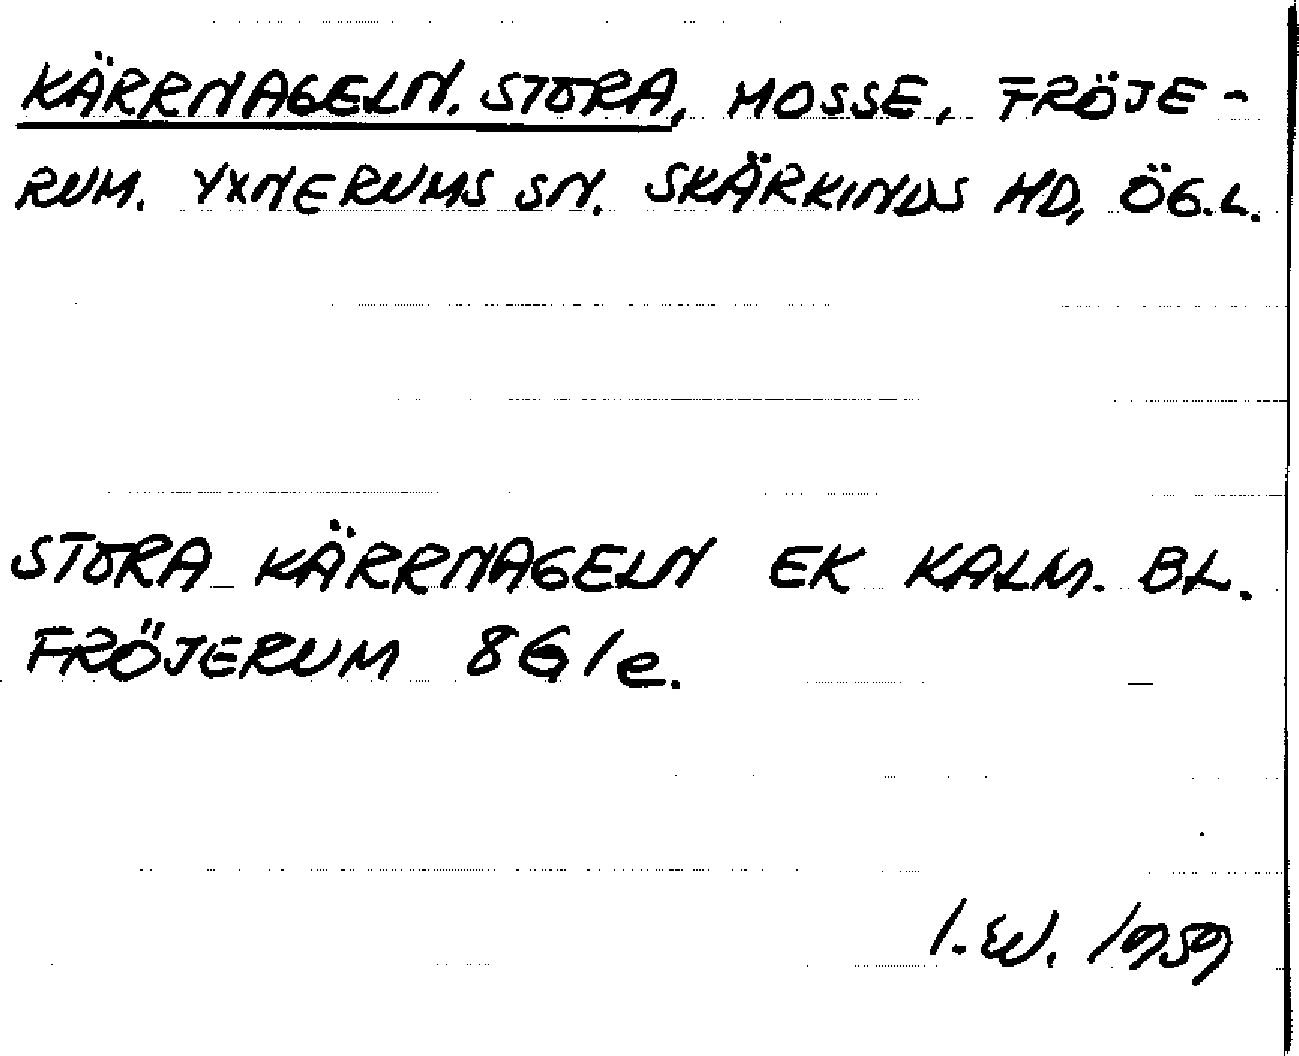 KÄRRNAGELN. STORA, MOSSE, FRÖJE-
RUM. YXNERUMS SN. SKÄRKINDS HD, ÖG.L.
STORA KÄRRNAGELN EK KALM. BL.
FRÖJERUM 8G1e.
I.W. 1959